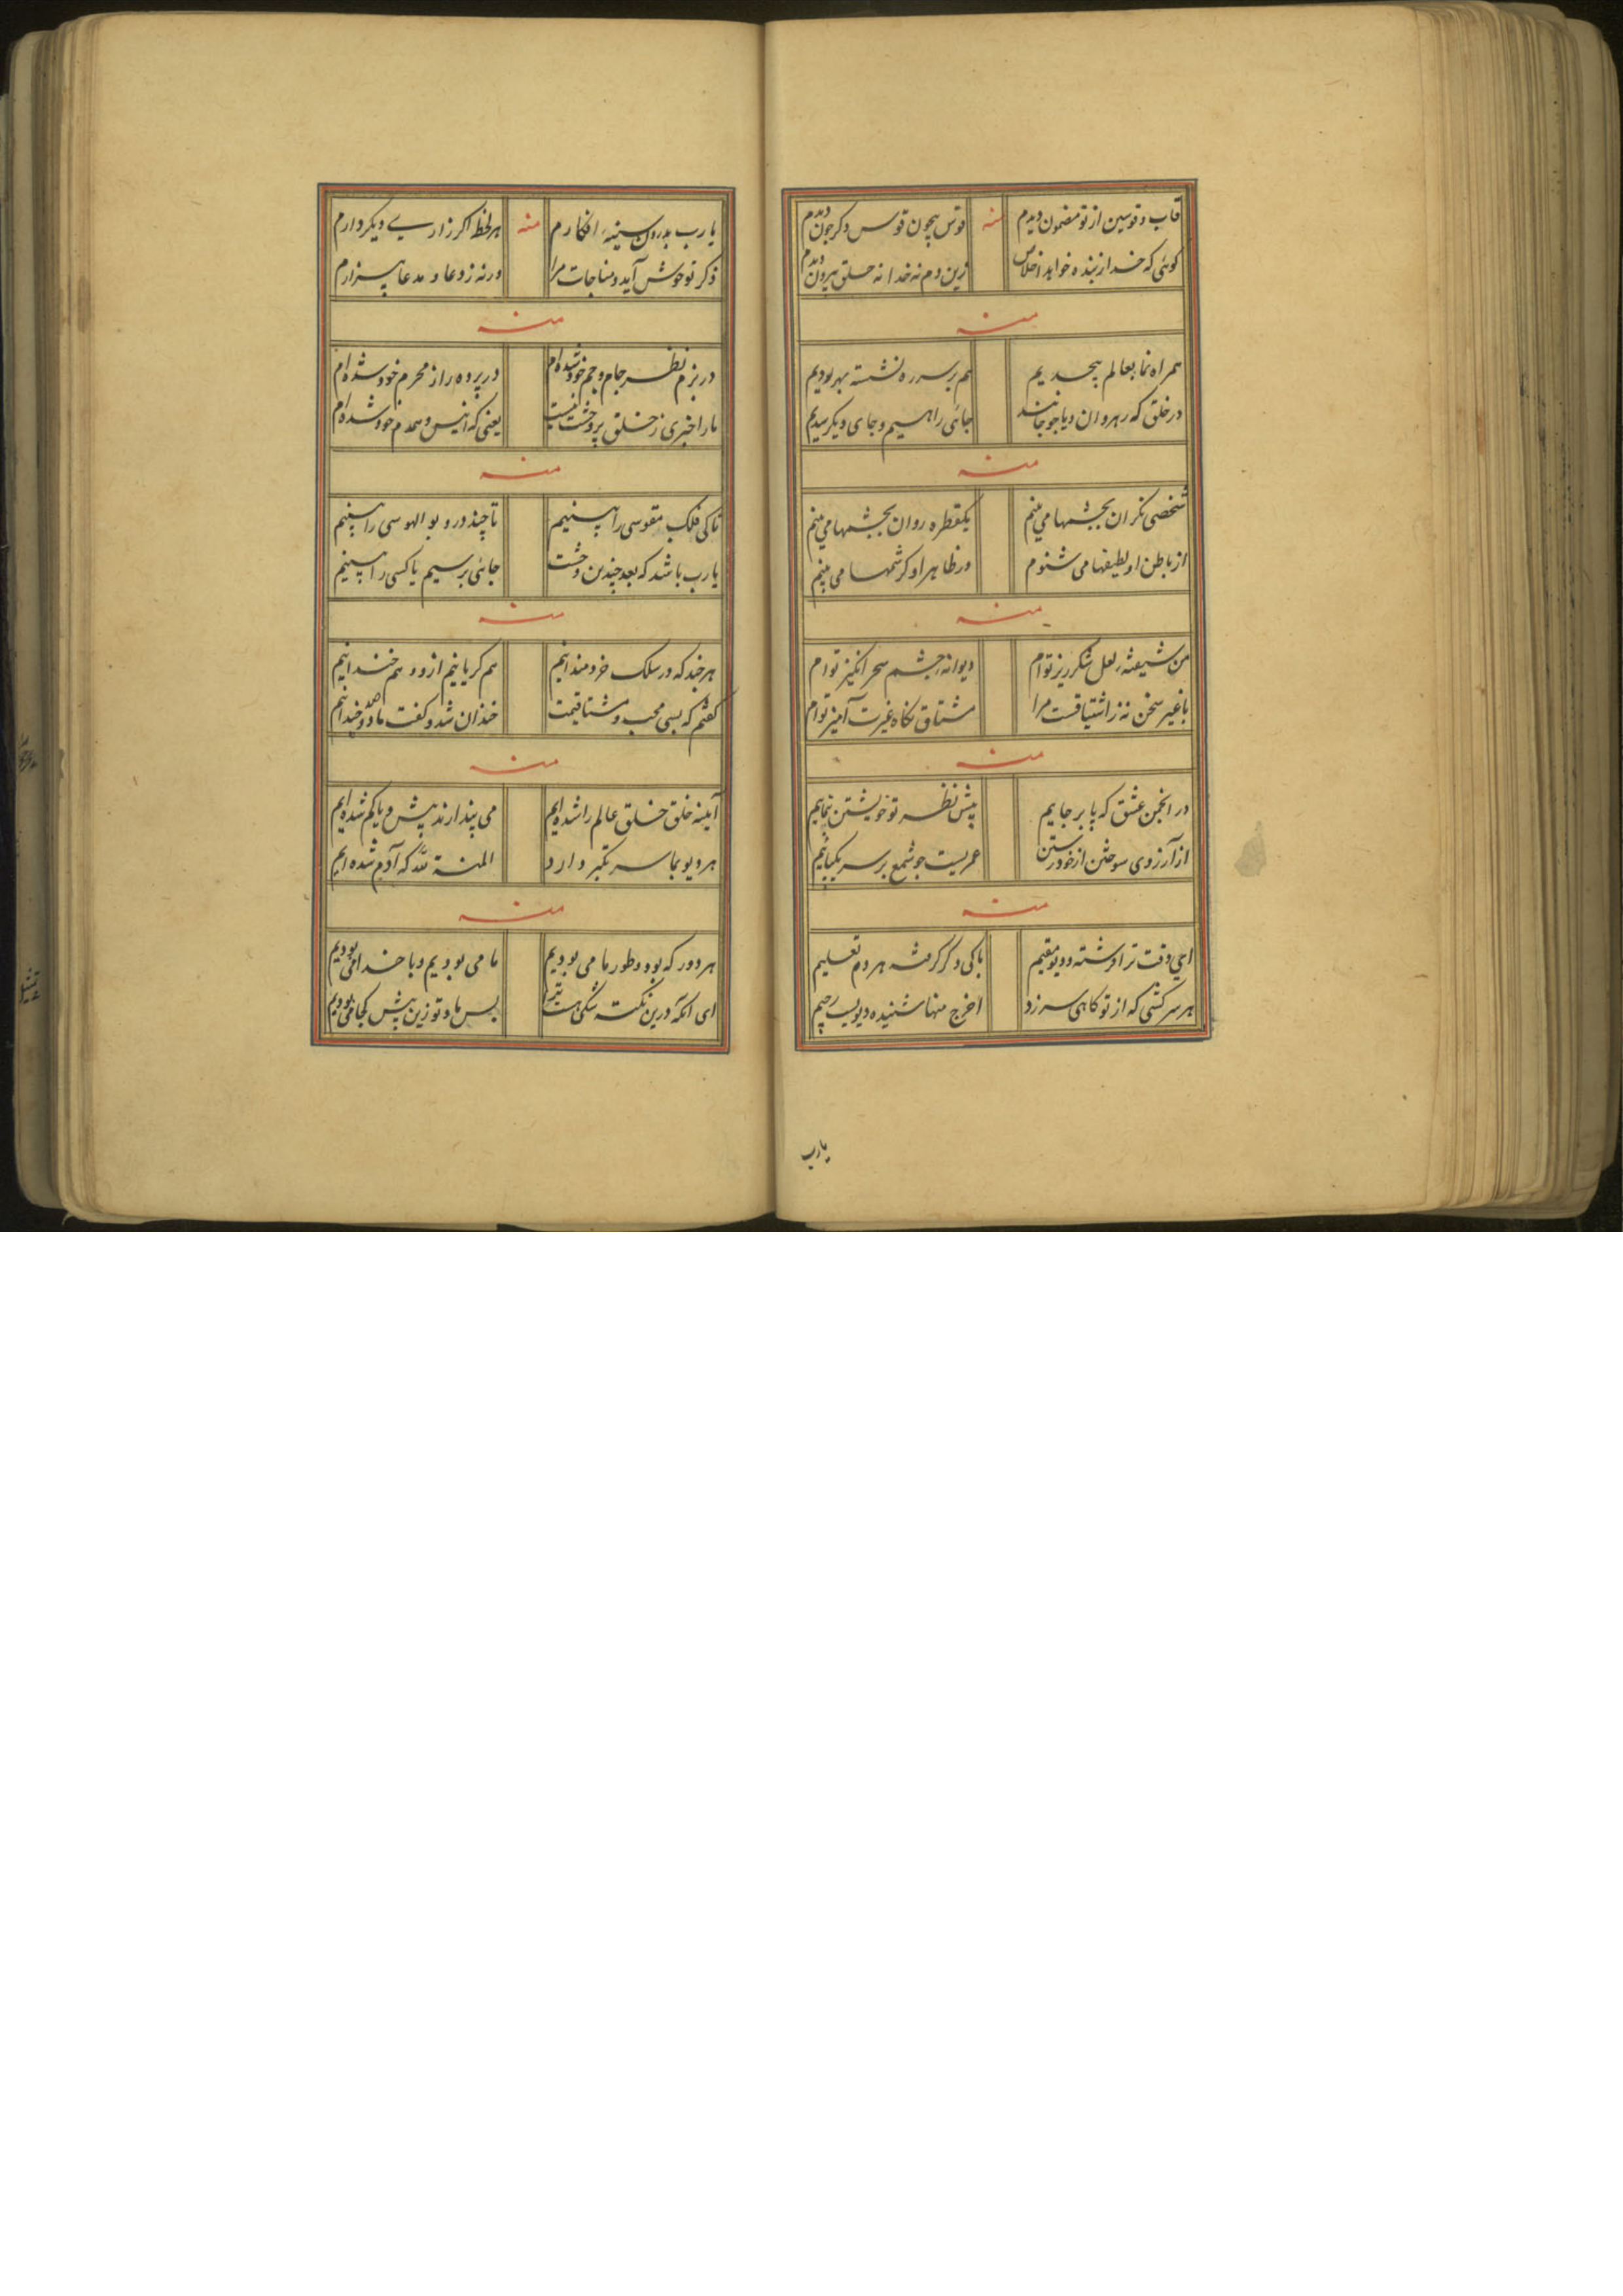 قاب و قوسین از تو مضمون دیدم منه قوس همچون قوس دگر چون دیدم
گوئی که خدا ز بنده خواهد اخلاص زین دم نه خدا نه خلق بیرون دیدم
منه
همراه نما بعالم بیحدیم هم بر سر ره نشسته بهر بودیم
در خلق که رهروان دیا جو جانند جائی راهیم و جای دیگر سدیم
منه
شخصی نگران بچشمها می بینم یکقطره روان بچشمها می بینم
از باطن او لطیفها می شنوم در ظاهر او کرشمها می بینم
منه
من شیفته لعل شکرریز توام دیوانه چشم سحر انگیز توام
با غیر سخن نه ز اشتیاقست مرا مشتاق نگاه غیرت آمیز توام
منه
در انجمن عشق که پا بر جاییم پیش نظر تو خویشتن بنماییم
از آرزوی سوختن از خود رستن عمریست چو شمع بر سر یکپاییم
منه
ای وقت ترا فرشته و دیو مقیم باکی دگر گرفته هر دم تعلیم
هر سرکشی که از تو گاهی سر زد اخرج منها شنیده دیویست رجیم
یارب
یا رب بدرون سینه افکارم منه هر لحظه اگر زاریی دیگر دارم
ذکر تو خوش آید و مناجات مرا ورنه ز دعا و مدعا بیزارم
منه
در بزم نظر جام و جم خود شده ام در پرده راز محرم خود شده ام
ما را خبری ز خلق پر وحشت نیست یعنی که انیس و همدم خود شده ام
منه
تا کی فلک مقوسی را بینیم تا چند درو بوالهوسی را بینیم
یا رب باشد که بعد چندین وحشت جائی برسیم یا کسی را بینیم
منه
هر چند که در سلک خردمندانیم هم گریانیم ازو و هم خندانیم
گفتم که بسی محب و مشتاقیمت خندان شد و گفت ما دو صد چندانیم
منه
آیینه خلق خلق عالم را شده ایم می پندارند بیش و یا کم شده ایم
هر دیو بما سر تکبر دارد المنة لله که آدم شده ایم
منه
هر دور که بود و طور ما می بودیم ما می بودیم و با خدا می بودیم
ای آنکه درین نکته شکی هست ترا پس ما و تو زین پیش کجا می بودیم